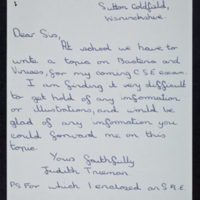 Sutton Coldfield,
Warwickshire.
Dear Sirs,
At school we have to
write a topic on Bacteria and
Viruses, for my coming C.S.E exam.
I am finding it very difficult
to get hold of any information
or illustrations, and would be
glad of any information you
could forward me on this
topic.
Yours faithfully
Judith Freeman
P.S For which I enclosed an S.A.E.